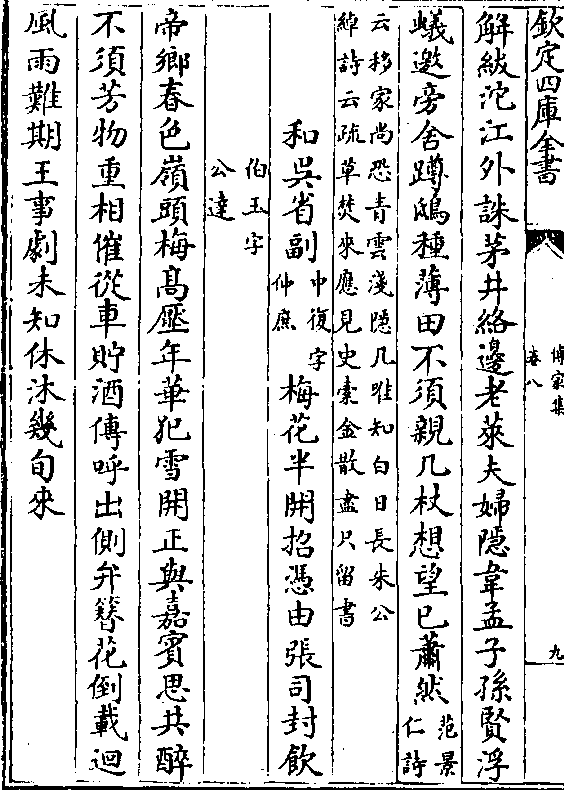 欽定四庫全書
傳家集
卷八
九
解紱沱江外誅茅井絡邊老萊夫婦隱韋孟子孫賢浮
蟻邀旁舍蹲鴟種薄田不須親几杖想望已蕭然
范景
仁詩
云移家尚恐青雲淺隱几唯知白日長朱公
綽詩云疏草焚來應見史橐金散盡只留書
和吳省副
中復字
仲庶
梅花半開招憑由張司封飲
伯玉字
公達
帝鄉春色嶺頭梅髙壓年華犯雪開正與嘉賓思共醉
不須芳物重相催從車貯酒傳呼出側弁簪花倒載迴
風雨難期王事劇未知休沐幾旬來